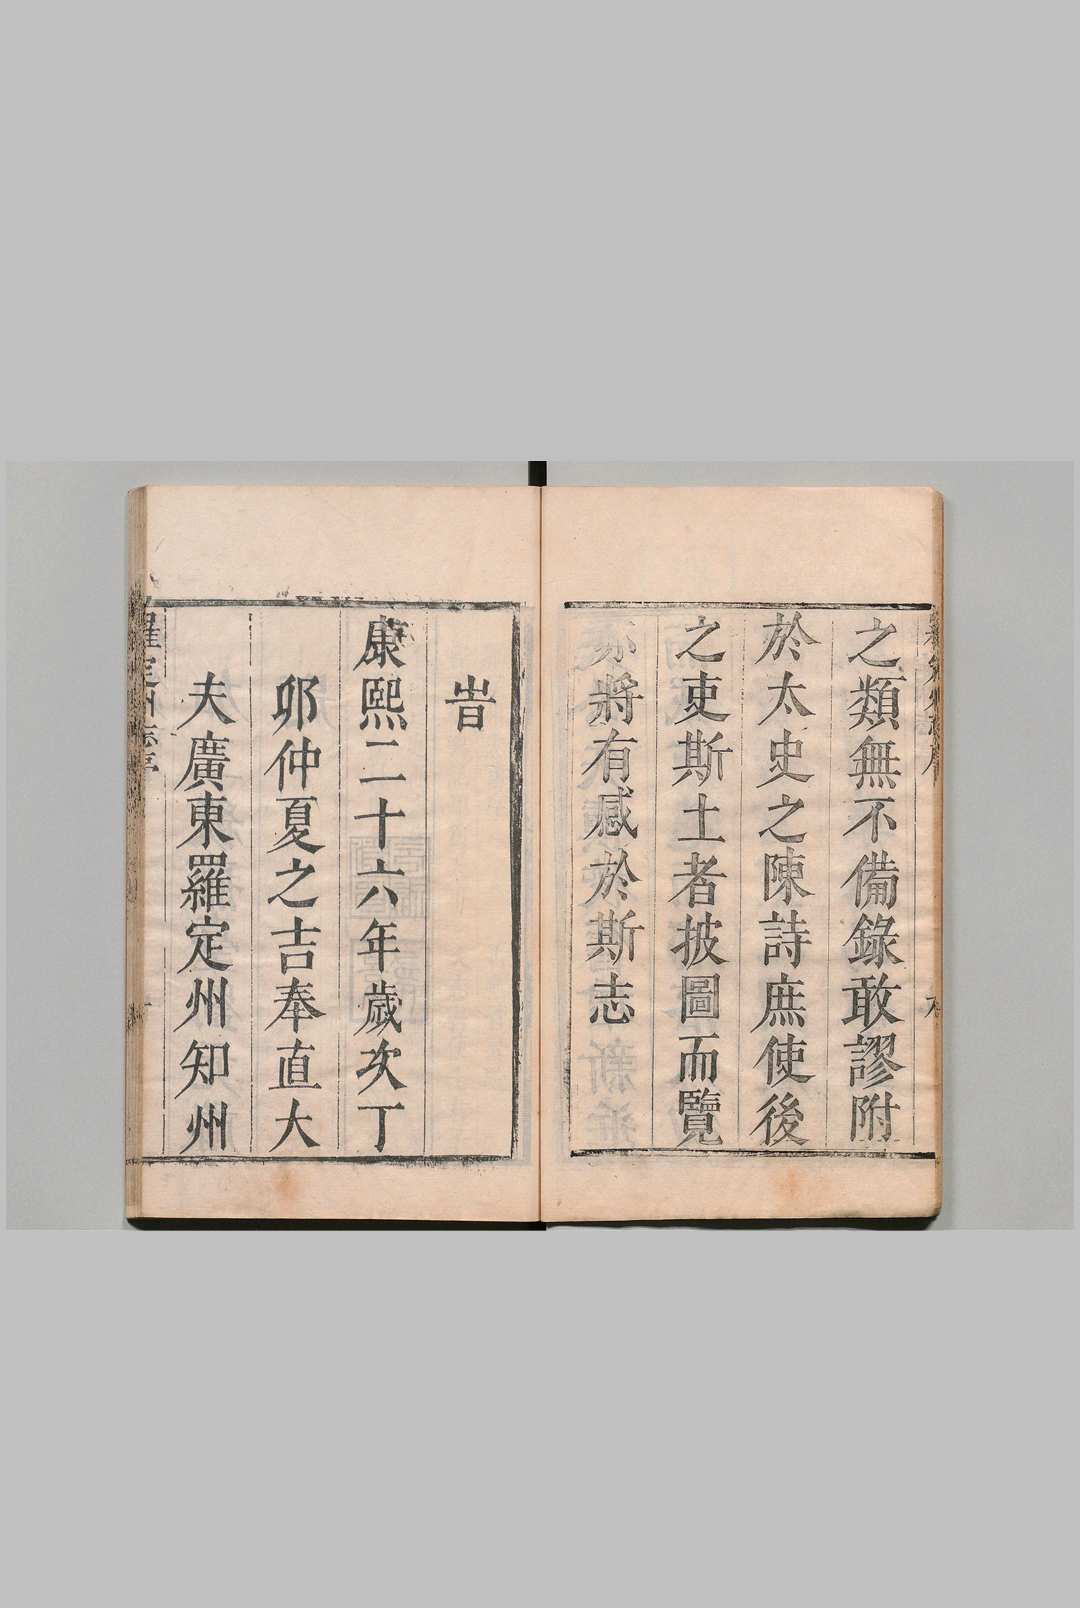 之類無不備錄敢謬附
於太史之陳詩庶使後
之吏斯土者披圖而覽
亦將有感於斯志
旹
康熙二十六年歲次丁
卯仲夏之吉奉直大
夫廣東羅定州知州
羅定州志序